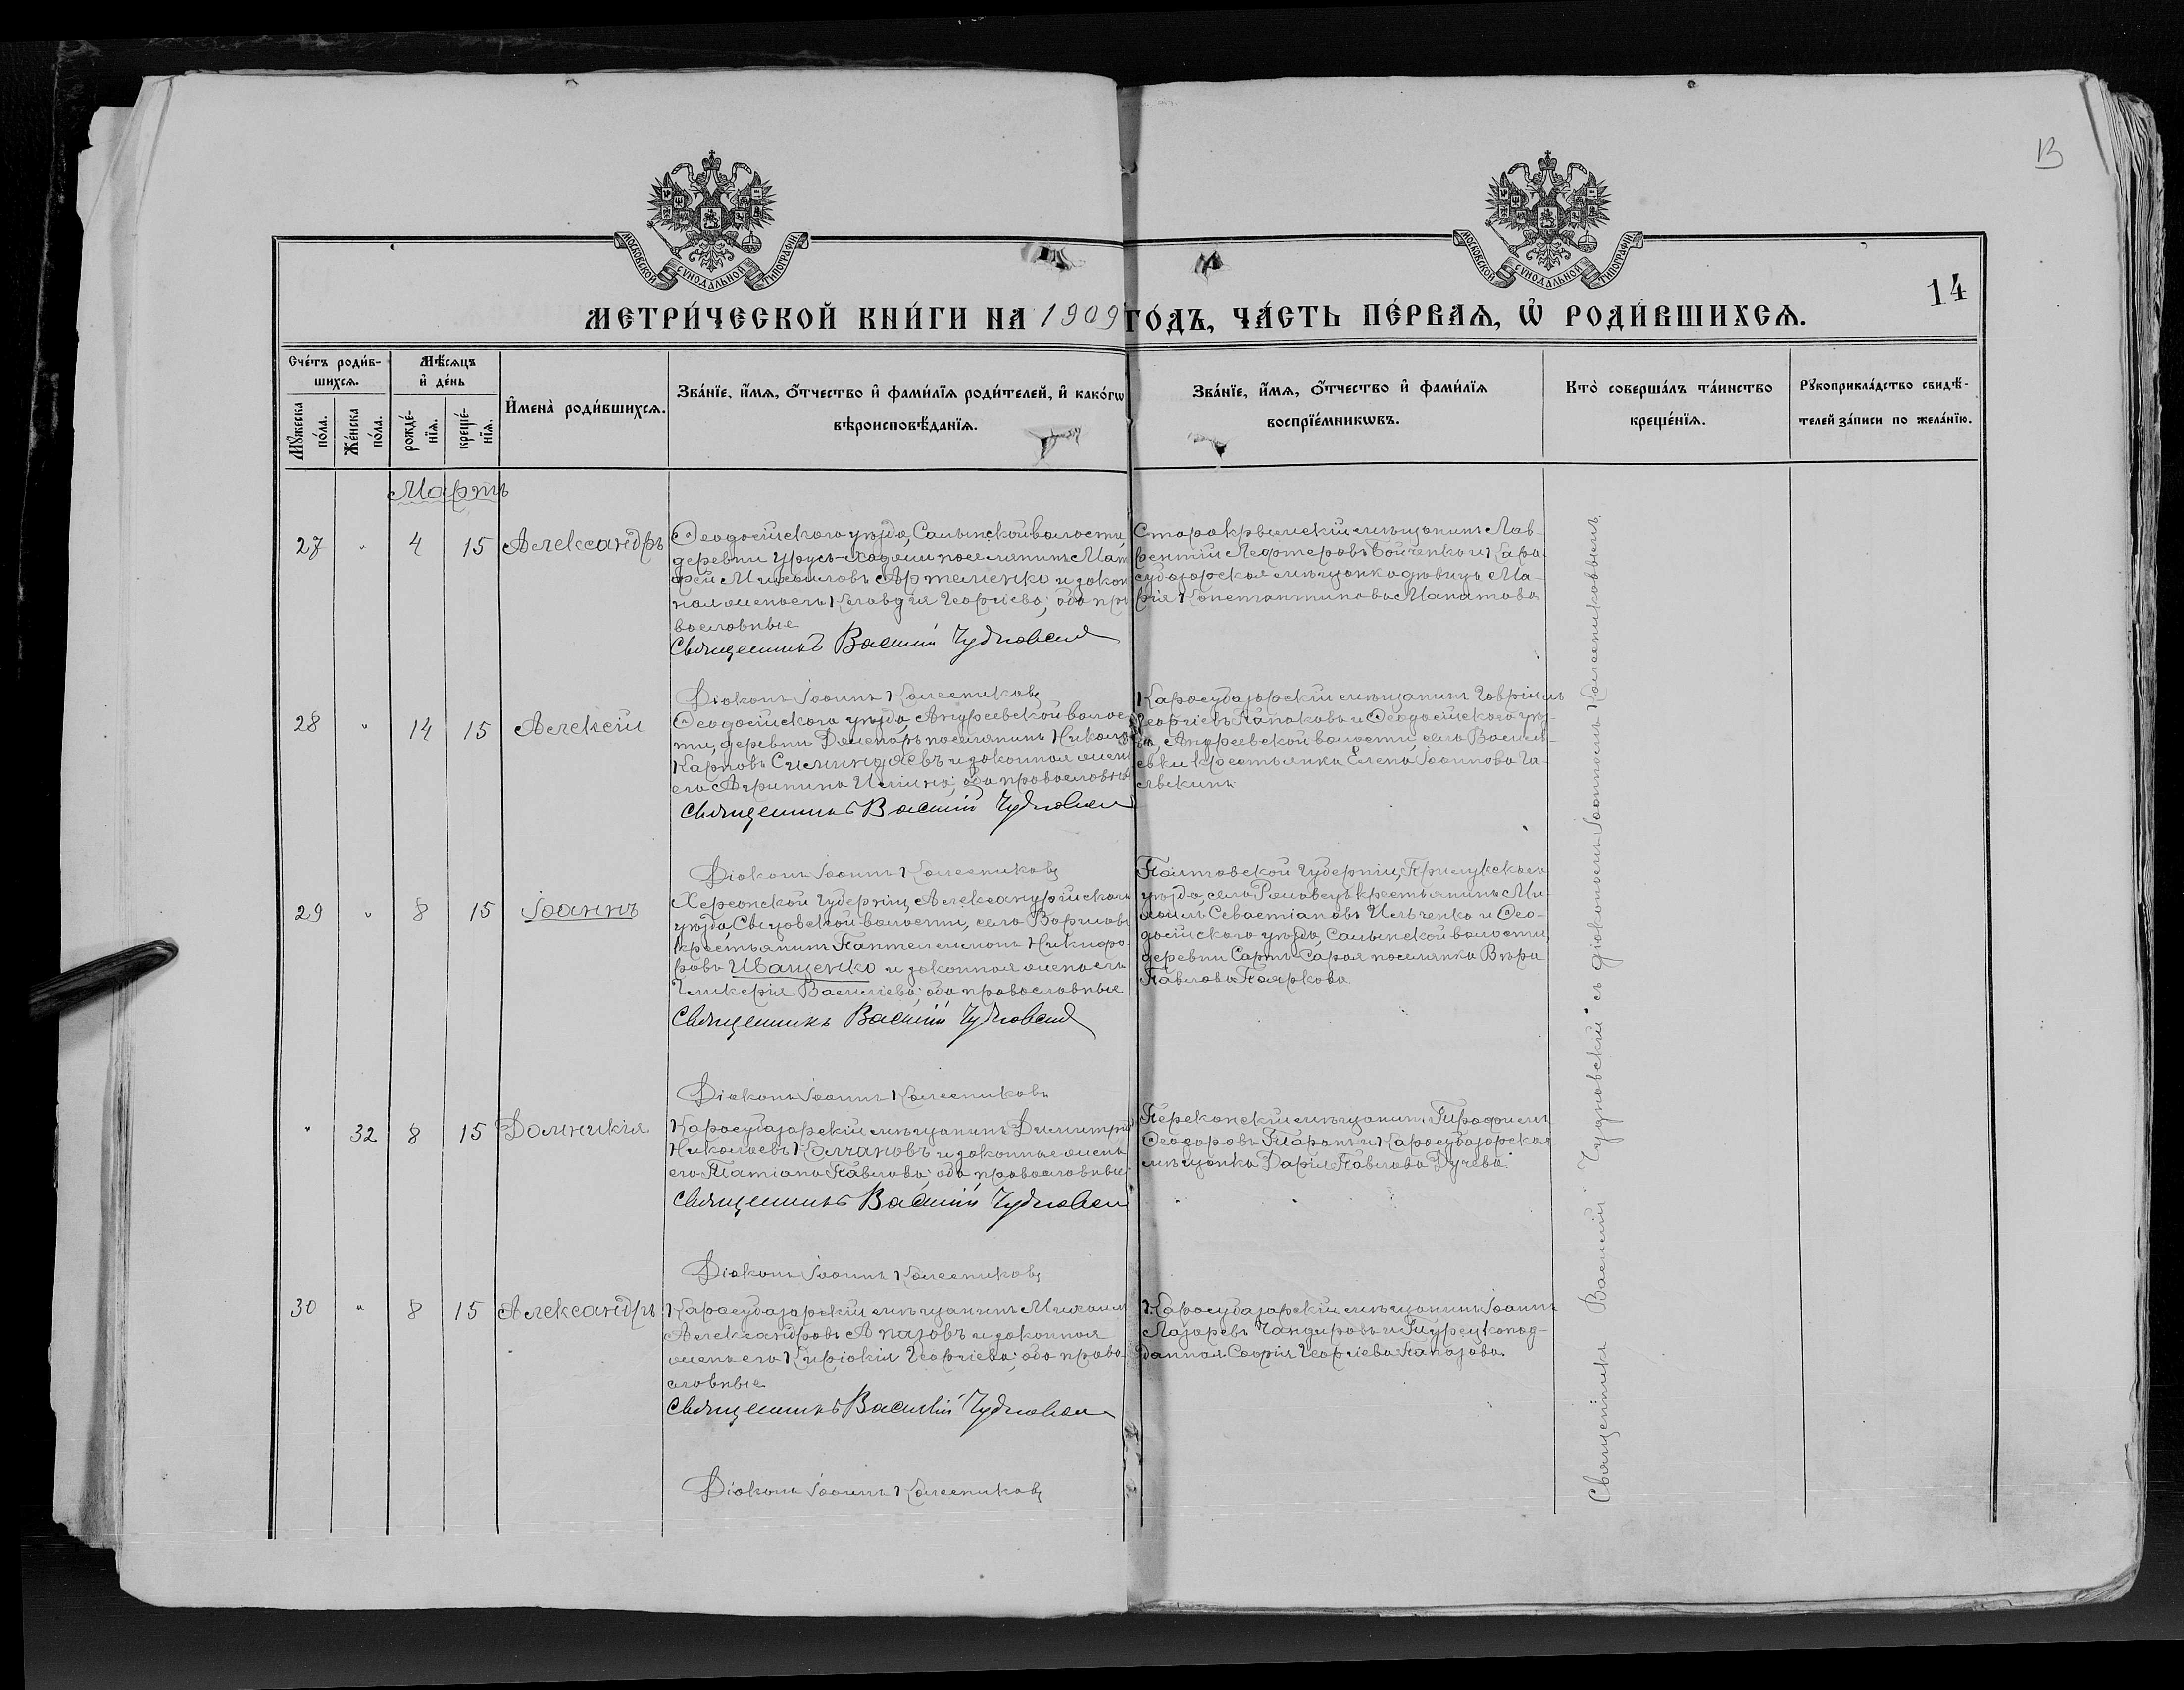 В
14
МОСКОВСКОЙ СѴНОДАЛЬНОЙ ТИПОГРАФІИ
МОСКОВСКОЙ СѴНОДАЛЬНОЙ ТИПОГРАФІИ
МЕТРИ́ЧЕСКОЙ КНИ́ГИ НА 1909 ГО́ДЪ, ЧА́СТЬ ПЕ́РВАѦ, Ѡ҆ РОДИ́ВШИХСѦ.
Сче́тъ роди́в-
шихсѧ.
Мꙋ́жеска по́ла.
Же́нска по́ла.
Мѣ́сѧцъ
и҆ де́нь
рожде́-
нїѧ.
креще́-
нїѧ.
И҆мена̀ роди́вшихсѧ.
Зва́нїе, и҆́мѧ, ѻ҆́тчество и҆ фами́лїѧ роди́телей, и҆ како́гѡ
вѣроисповѣ́данїѧ.
Зва́нїе, и҆́мѧ, ѻ҆́тчество и҆ фами́лїѧ
воспрїе́мникѡвъ.
Кто̀ соверша́лъ та́инство
креще́нїѧ.
Рꙋкоприкла́дство свидѣ́-
телей за́писи по жела́нїю.
Мартъ
27 " 4 15 Александръ
Ѳеодосійскаго уѣзда, Салынской волости,
деревни Урусъ-Ходжи поселянинъ Мат
фей Михаиловъ Артеменко и закон
ная жена его Клавдія Георгіева; оба пра
вославные
Священникъ Василій Чудновскій
Діаконъ Іоаннъ Колесниковъ
Старокрымскій мѣщанинъ Лав-
рентій Лефтеровъ Бойченко и Кара-
субазарская мѣщанка дѣвица Ма-
рія Константинова Манатова
28 " 14 15 Алексій
Ѳеодосійскаго уѣзда, Андреевской волос
ти, деревни поселянинъ Никола
Карповъ Силиндяевъ и законная жена
его Агрипина Ильина; оба православные
Священникъ Василій Чудновскій
Діаконъ Іоаннъ Колесниковъ
Карасубазарскій мѣщанинъ Гавріилъ
Георгіевъ Папаковъ и Ѳеодосійскаго уѣз-
да, Андреевской волости, села Василь-
евки крестьянка Елена Іоаннова Га-
29 " 8 15 Іоаннъ
Херсонской Губерніи, Александрійскаго
уѣзда, волости, села
крестьянинъ Пантелеимонъ Никифо-
ровъ Иващенко и законная жена его
Гликерія Васильева; оба православные
Священникъ Василій Чудновскій
Діаконъ Іоаннъ Колесниковъ
Полтавской Губерніи, Прилукскаго
уѣзда, села крестьянинъ Ми-
хаилъ Севастіановъ Ильченко и Ѳео-
досійскаго уѣзда, Салынской волости,
деревни Сартъ-Сарая поселянка Вѣра
Павлова Пояркова.
" 32 8 15 Домникія
Карасубазарскій мѣщанинъ Димитрій
Николаевъ Колчановъ и законная жена
его Татіана Павлова; оба православные
Священникъ Василій Чудновскій
Діаконъ Іоаннъ Колесниковъ
Перекопскій мѣщанинъ
Ѳеодоровъ Таранъ и Карасубазарская
мѣщанка Дарія Павлова Дучева.
30 " 8 15 Александръ
Карасубазарскій мѣщанинъ Михаилъ
Александровъ Апазовъ и законная
жена его Киріакія Георгіева; оба право-
славные
Священникъ Василій Чудновскій
Діаконъ Іоаннъ Колесниковъ
Карасубазарскій мѣщанинъ Іоаннъ
Лазаревъ Чандировъ и Турецкопод-
данная Софія Георгіева Папазова.
Священникъ Василій Чудновскій съ діакономъ Іоанномъ Колесниковымъ